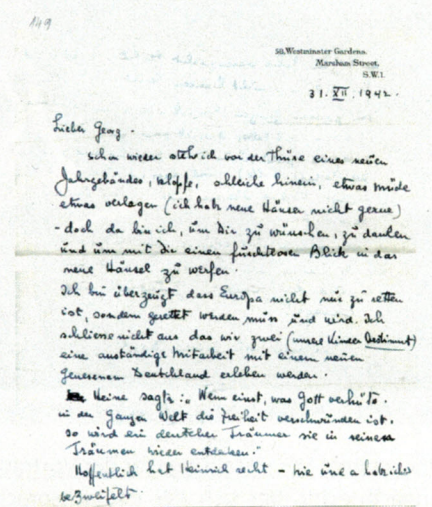 149
58, Westminster Gardens.
Marsham Street.
S.W.1.
31. XII. 1942.
Lieber Georg.
schon wieder steh ich vor der Thüre eines neuen
Jahrgebäudes, klopfe, schleiche hinein, etwas müde
etwas verlegen (ich habe neue Häuser nicht gerne)
- doch da bin ich, um Dir zu wünschen, zu danken
und um mit Dir einen furchtlosen Blick in das
neue Häusel zu werfen.
Ich bin überzeugt dass Europa nicht nur zu retten
ist, sondern gerettet werden muss und wird. Ich
schliesse nicht aus das wir zwei (unsere Kinder bestimmt)
eine anständige Mitarbeit mit einem neuen
genesenen Deutschland erleben werden.
Heine sagte: Wenn einst, was Gott verhüte.
in der Ganzen Welt die Freiheit verschwunden ist.
so wird ein deutscher Träumer sie in seinen
Träumen wieder entdecken."
Hoffentlich hat Heinrich recht - nie habe ich es
bezweifelt